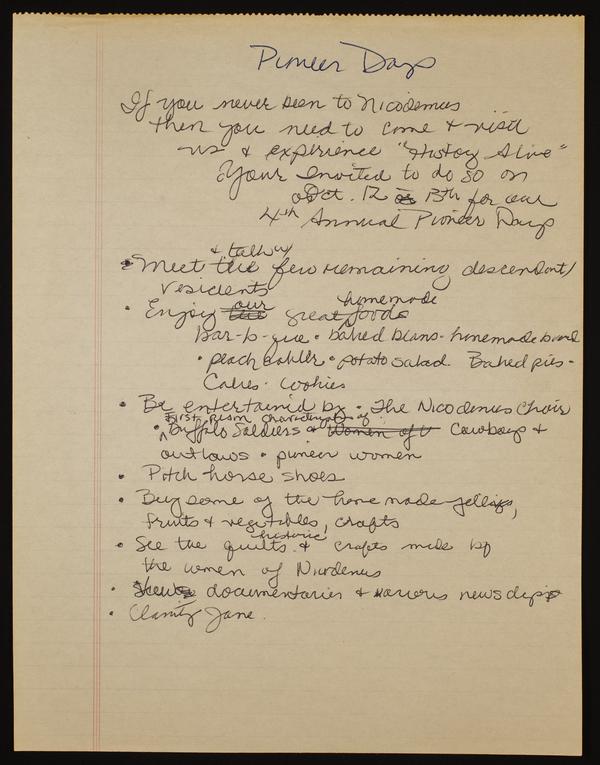 Pioneer Days
If you never been to Nicodemus
then you need to come & visit
us & experience "History Alive"
Your Invited to do so on
Oct. 12 or 13th for our
4th Annual Pioneer Days
& talk w/
• Meet the few remaining descendant/
residents
homemade
• Enjoy our great foods
bar-b-que • baked beans - homemade bread
• peach cobbler • potato salad. Baked pies -
Cakes - cookies
• Be entertained by • The Nicodemus Choir
First person characterizations of:
• Buffalo Soldiers & Women of V Cowboys &
outlaws • pioneer women
• Pitch horse shoes
• Buy some of the home made jellies,
fruits & vegetables, crafts
historic
• See the quilts & crafts made by
the women of Nicodemus
• documentaries & various news clips
• Clamity Jane.